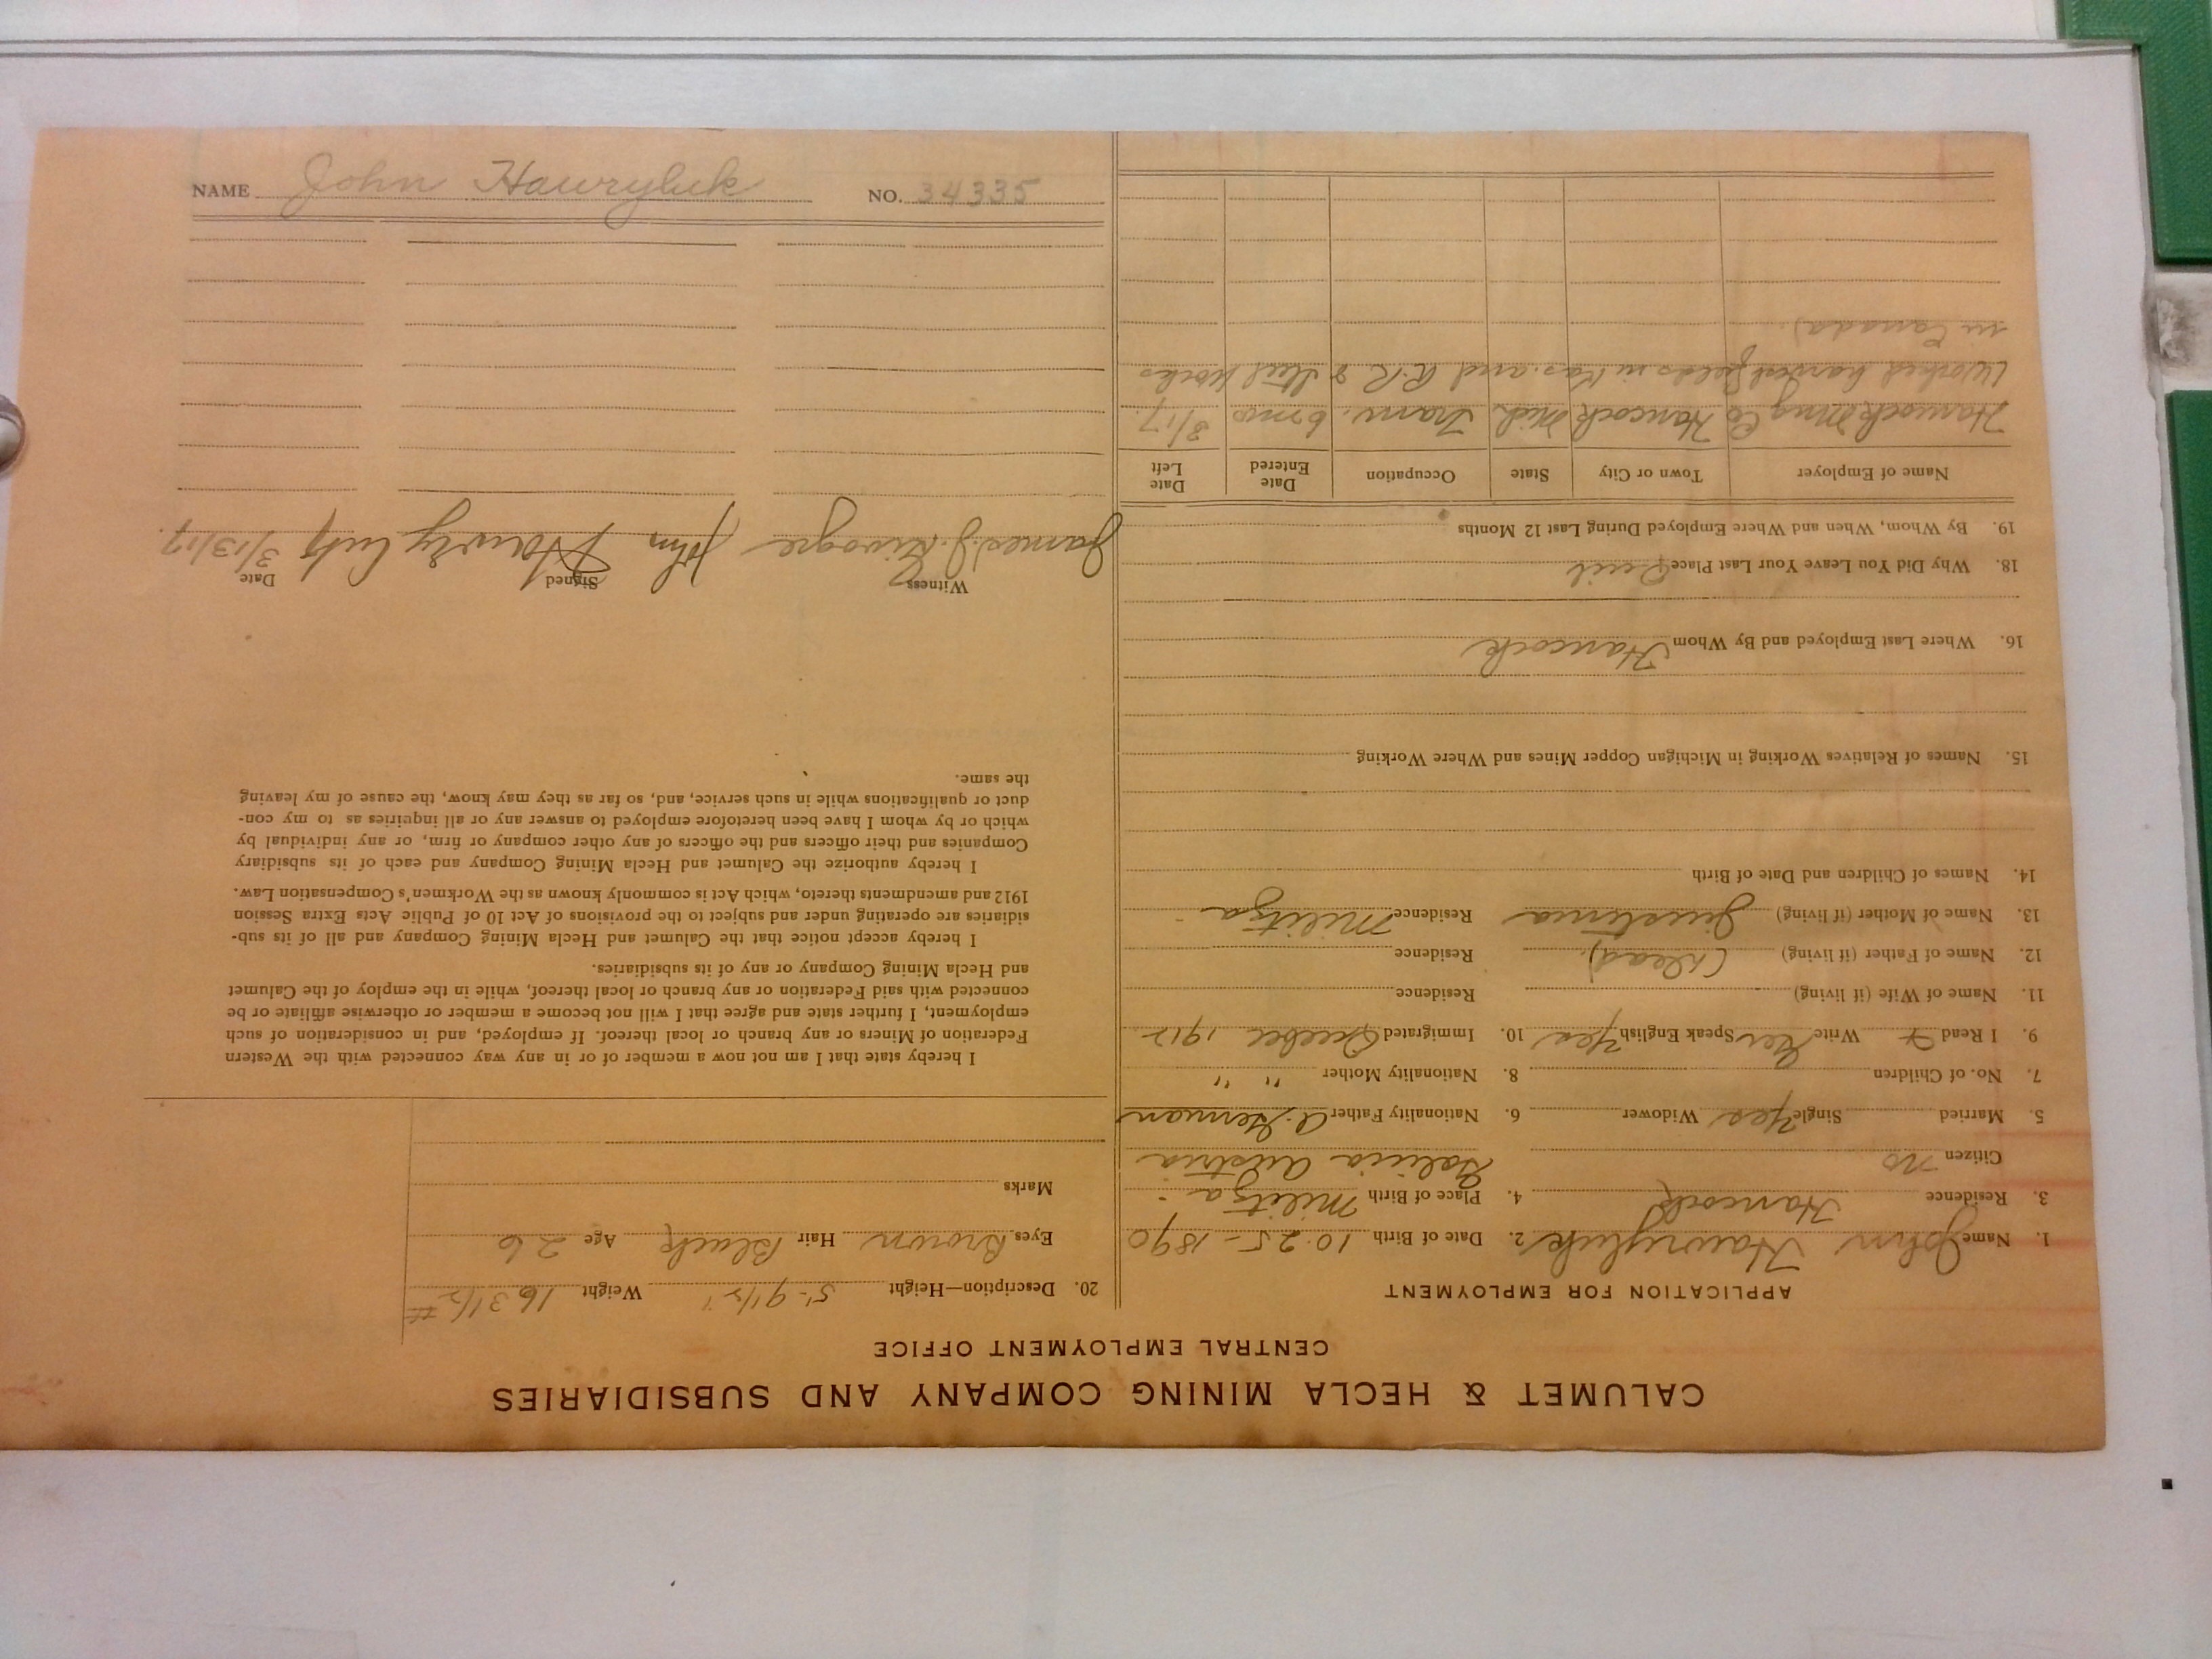 CALUMET & HECLA MINING COMPANY AND SUBSIDIARIES
CENTRAL EMPLOYMENT OFFICE
APPLICATION FOR EMPLOYMENT
1. Name John Hawryluk 2. Date of Birth 10-25-1890
3. Residence Hancock 4. Place of Birth Militza-
Citizen no Galicia Austria
5. Married Single Yes Widower 6. Nationality Father A. German
7. No. of Children 8. Nationality Mother " "
9. I Read Write Speak English Yes 10. Immigrated Quebec 1912
11. Name of Wife (if living) Residence
12. Name of Father (if living) (Dead) Residence
13. Name of Mother (if living) Justina Residence Militza
14. Names of Children and Date of Birth
15. Names of Relatives Working in Michigan Copper Mines and Where Working
16. Where Last Employed and By Whom Hancock
18. Why Did You Leave Your Last Place Quit
19. By Whom, When and Where Employed During Last 12 Months
Name of Employer Town or City State Occupation Date Entered Date Left
Hancock Mng Co Hancock Mich Tram. 6 mos 3/17.
Worked harvest fields in Kas. and R.R. & Steel Works
in Canada)
20. Description—Height 5'-9 1/2" Weight 163 1/2 #
Eyes Brown Hair Black Age 26
Marks
I hereby state that I am not now a member of or in any way connected with the Western
Federation of Miners or any branch or local thereof. If employed, and in consideration of such
employment, I further state and agree that I will not become a member or otherwise affiliate or be
connected with said Federation or any branch or local thereof, while in the employ of the Calumet
and Hecla Mining Company or any of its subsidiaries.
I hereby accept notice that the Calumet and Hecla Mining Company and all of its sub-
sidiaries are operating under and subject to the provisions of Act 10 of Public Acts Extra Session
1912 and amendments thereto, which Act is commonly known as the Workmen's Compensation Law.
I hereby authorize the Calumet and Hecla Mining Company and each of its subsidiary
Companies and their officers and the officers of any other company or firm, or any individual by
which or by whom I have been heretofore employed to answer any or all inquiries as to my con-
duct or qualifications while in such service, and, so far as they may know, the cause of my leaving
the same.
Witness Signed Date
James J. John 3/13/17.
NAME John Hawryluk NO. 34335